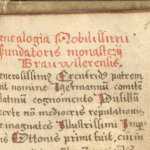 Genealogia Nobilissimi
fundatoris monasterij
Brauwilerensis.
enerosissimus Erenfridus patrem
at nomine Hermannũ comitẽ
latinũ cognomento Pusillũ
certe nõ mediocris reputationis
magnates Illustrissimi Imp
Ottonis primi fuit, cui in